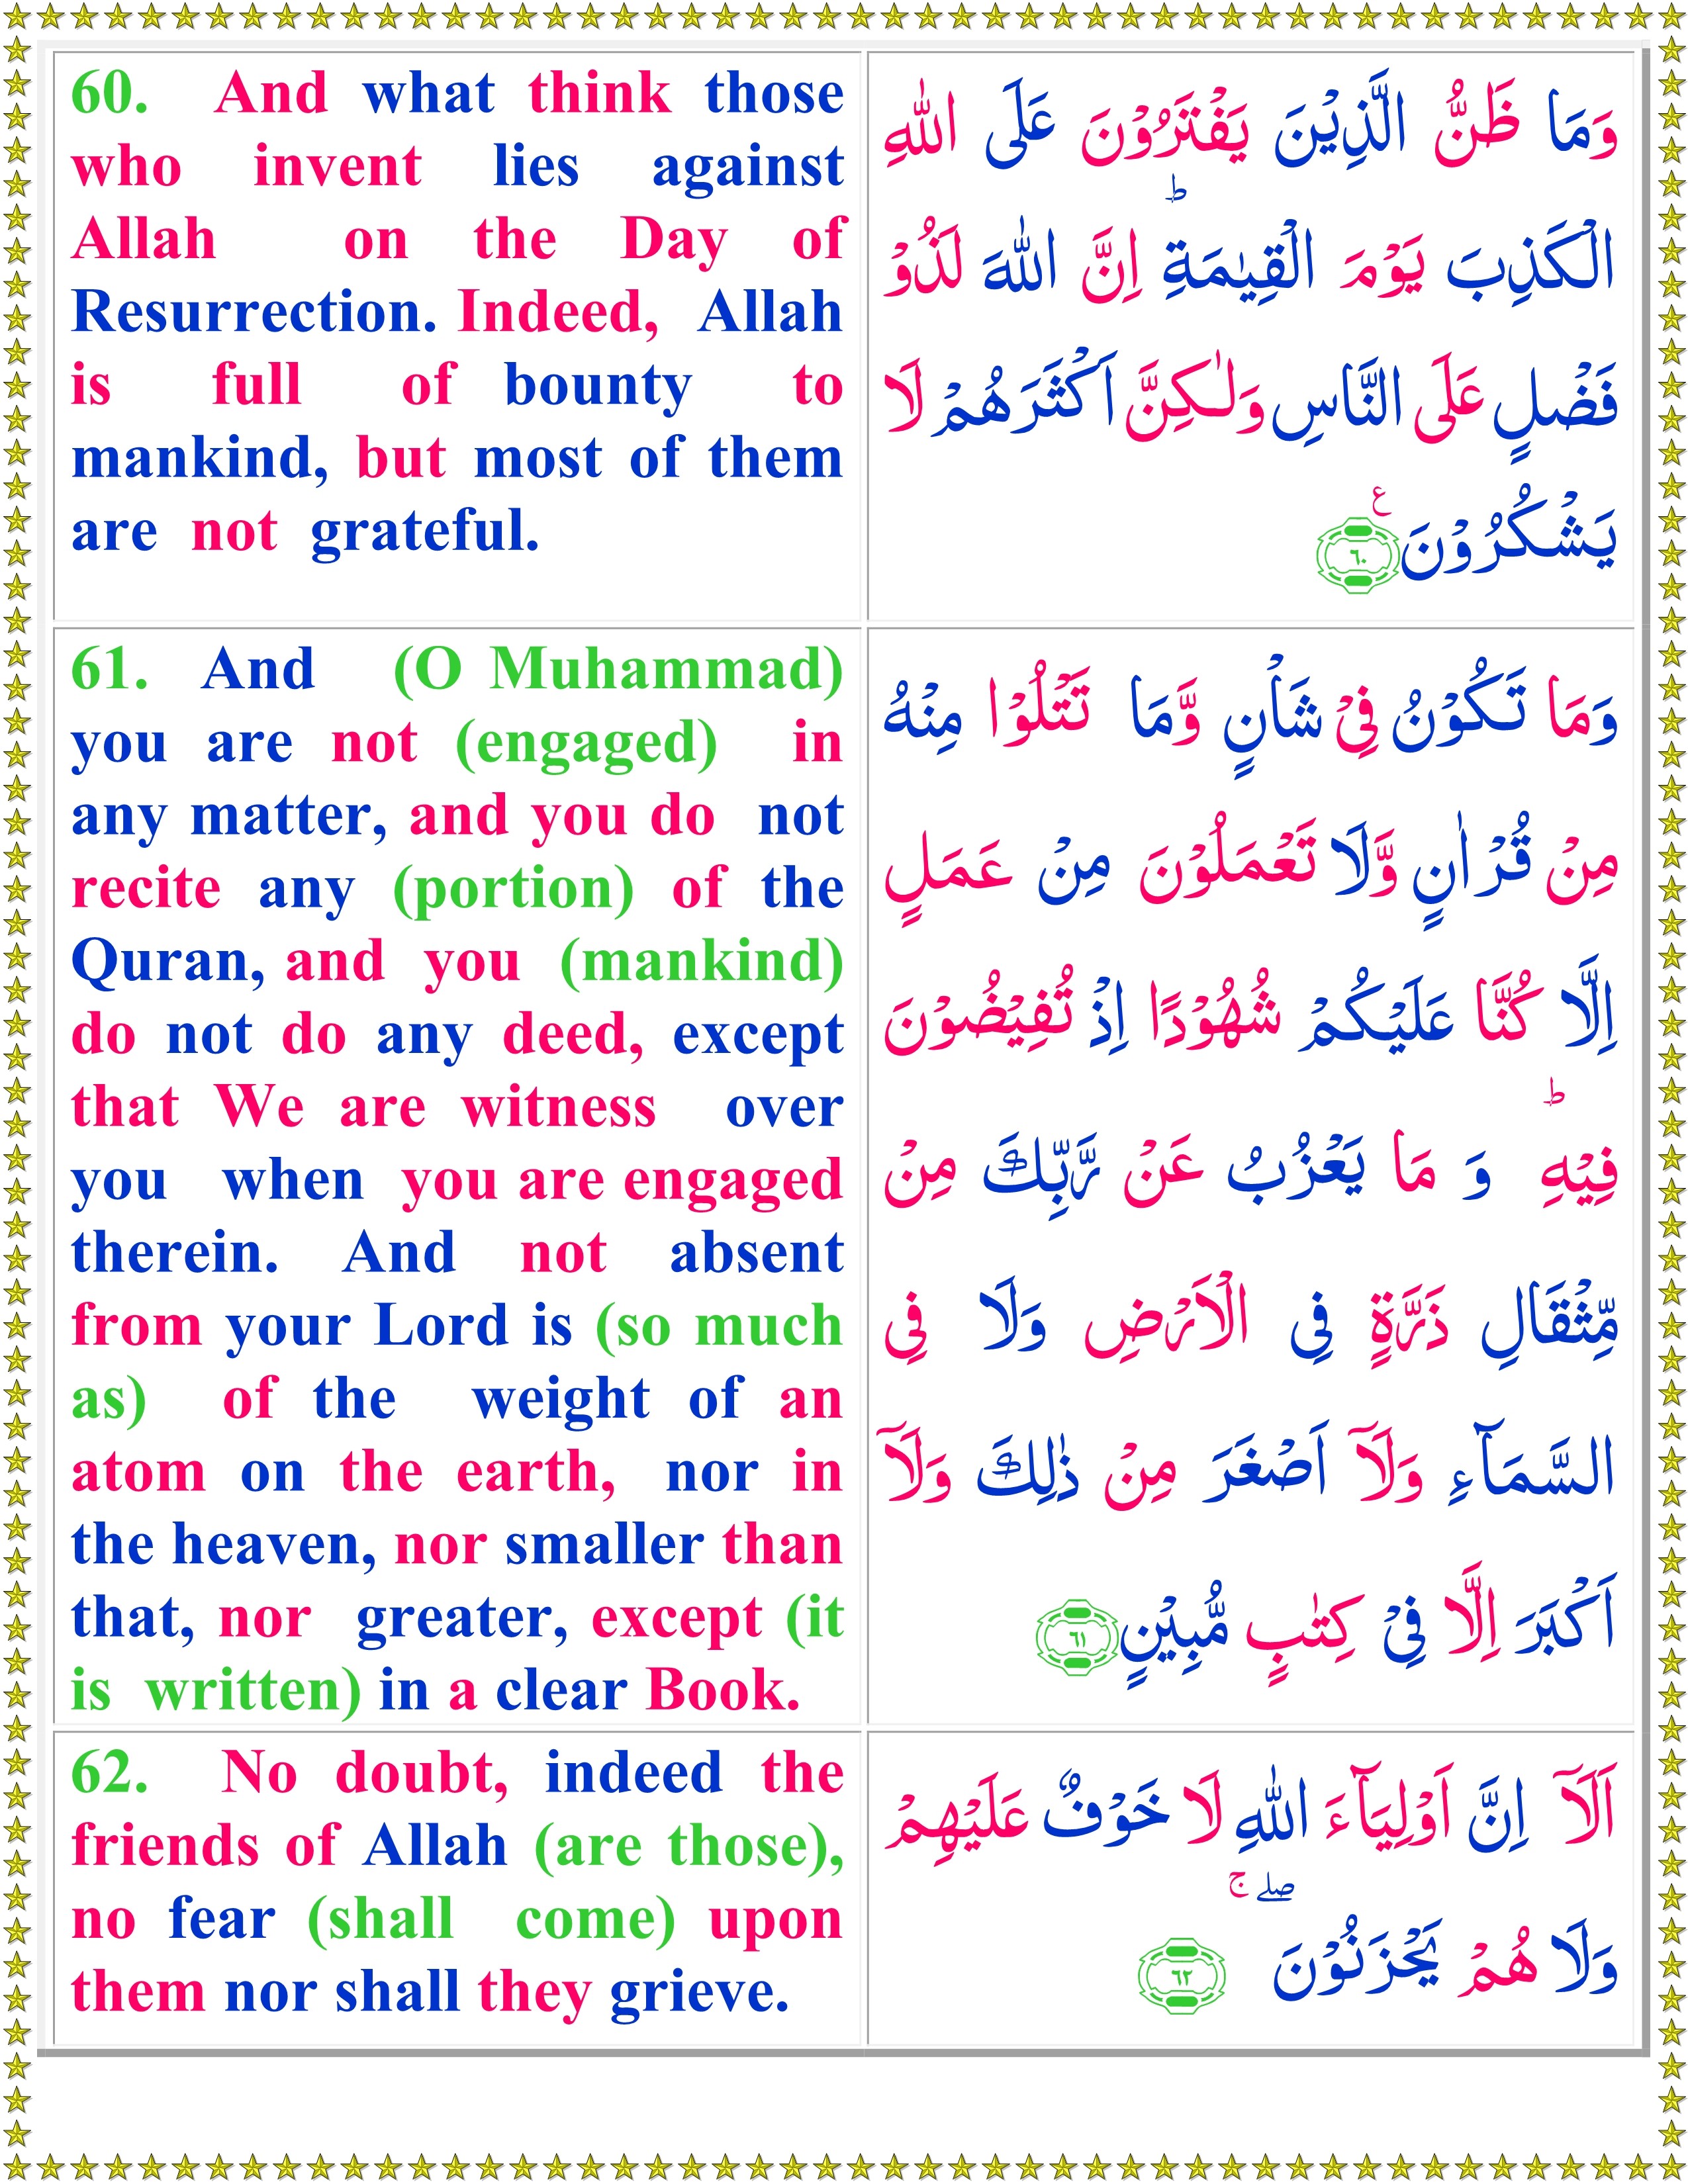 60. And what think those
who invent lies against
Allah on the Day of
Resurrection. Indeed, Allah
is full of bounty to
mankind, but most of them
are not grateful.
وَمَا ظَنُّ الَّذِيْنَ يَفْتَرُوْنَ عَلَى اللّٰهِ
الْكَذِبَ يَوْمَ الْقِيٰمَةِ ؕ اِنَّ اللّٰهَ لَذُوْ
فَضْلٍ عَلَى النَّاسِ وَلٰـكِنَّ اَكْثَرَهُمْ لَا
يَشْكُرُوْنَ ع ٦٠
61. And (O Muhammad)
you are not (engaged) in
any matter, and you do not
recite any (portion) of the
Quran, and you (mankind)
do not do any deed, except
that We are witness over
you when you are engaged
therein. And not absent
from your Lord is (so much
as) of the weight of an
atom on the earth, nor in
the heaven, nor smaller than
that, nor greater, except (it
is written) in a clear Book.
وَمَا تَكُوْنُ فِىْ شَاْنٍ وَّمَا تَتْلُوْا مِنْهُ
مِنْ قُرْاٰنٍ وَّلَا تَعْمَلُوْنَ مِنْ عَمَلٍ
اِلَّا كُنَّا عَلَيْكُمْ شُهُوْدًا اِذْ تُفِيْضُوْنَ
فِيْهِ ؕ وَ مَا يَعْزُبُ عَنْ رَّبِّكَ مِنْ
مِّثْقَالِ ذَرَّةٍ فِى الْاَرْضِ وَلَا فِى
السَّمَآءِ وَلَاۤ اَصْغَرَ مِنْ ذٰلِكَ وَلَاۤ
اَكْبَرَ اِلَّا فِىْ كِتٰبٍ مُّبِيْنٍ ٦١
62. No doubt, indeed the
friends of Allah (are those),
no fear (shall come) upon
them nor shall they grieve.
اَلَاۤ اِنَّ اَوْلِيَآءَ اللّٰهِ لَا خَوْفٌ عَلَيْهِمْ
وَلَا هُمْ يَحْزَنُوْنَ ۖ ۚ ٦٢